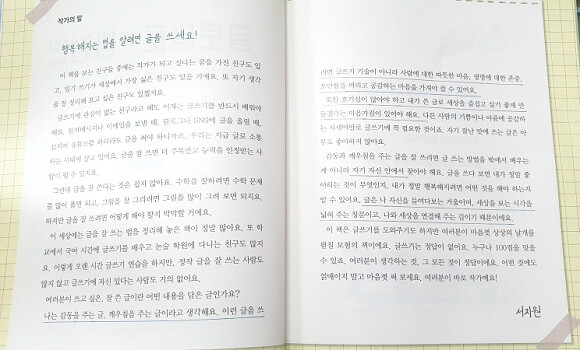 작가의 말
행복해지는 법을 알려면 글을 쓰세요!
이 책을 보는 친구들 중에는 작가가 되고 싶다는 꿈을 가진 친구도 있
고, 일기 쓰기가 세상에서 가장 싫은 친구도 있을 거예요. 또 자기 생각
을 잘 정리해 보고 싶은 친구도 있겠지요.
글쓰기에 관심이 없는 친구라고 해도 이제는 글쓰기를 반드시 배워야
해요. 문자메시지나 이메일을 보낼 때, 블로그나 SNS에 글을 올릴 때,
심지어 유튜브를 하더라도 글을 써야 하니까요. 우리는 지금 글로 소통
하는 시대에 살고 있어요. 글을 잘 쓰면 더 주목받고 능력을 인정받는 사
람이 될 수 있지요.
그런데 글을 잘 쓴다는 것은 쉽지 않아요. 수학을 잘하려면 수학 문제
를 많이 풀면 되고, 그림을 잘 그리려면 그림을 많이 그려 보면 되지요.
하지만 글을 잘 쓰려면 어떻게 해야 할지 막막할 거예요.
이 세상에는 글을 잘 쓰는 법을 정리해 놓은 책이 정말 많아요. 또 학
교에서 국어 시간에 글쓰기를 배우고 논술 학원에 다니는 친구도 많지
요. 이렇게 오랜 시간 글쓰기 연습을 하지만, 정작 글을 잘 쓰는 사람도
많지 않고 글쓰기에 자신 있다는 사람도 거의 없어요.
여러분이 쓰고 싶은, 잘 쓴 글이란 어떤 내용을 담은 글인가요?
나는 감동을 주는 글, 깨우침을 주는 글이라고 생각해요. 이런 글을 쓰
려면 글쓰기 기술이 아니라 사람에 대한 따뜻한 마음, 생명에 대한 존중,
오만함을 버리고 공감하는 마음을 가져야 쓸 수 있어요.
또한 호기심이 많아야 하고 내가 쓴 글로 세상을 즐겁고 살기 좋게 만
들겠다는 마음가짐이 있어야 해요. 다른 사람의 기쁨이나 아픔에 공감하
는 자세야말로 글쓰기에 꼭 필요한 것이죠. 자기 잘난 맛에 쓰는 글은 아
무도 좋아하지 않아요.
감동과 깨우침을 주는 글을 잘 쓰려면 글 쓰는 방법을 밖에서 배우는
게 아니라 자기 자신 안에서 찾아야 해요. 글을 쓰다 보면 내가 정말 좋
아하는 것이 무엇인지, 내가 정말 행복해지려면 어떤 것을 해야 하는지
알 수 있어요. 글은 나 자신을 들여다보는 거울이며, 세상을 보는 시각을
넓혀 주는 창문이고, 나와 세상을 연결해 주는 길이기 때문이에요.
이 책은 글쓰기를 도와주기도 하지만 여러분이 마음껏 상상의 날개를
펼칠 모험의 책이에요. 글쓰기는 정답이 없어요. 누구나 100점을 맞을
수 있죠. 여러분이 생각하는 것, 그 모든 것이 정답이에요. 어떤 것에도
얽매이지 말고 마음껏 써 보세요. 여러분이 바로 작가예요!
서지원